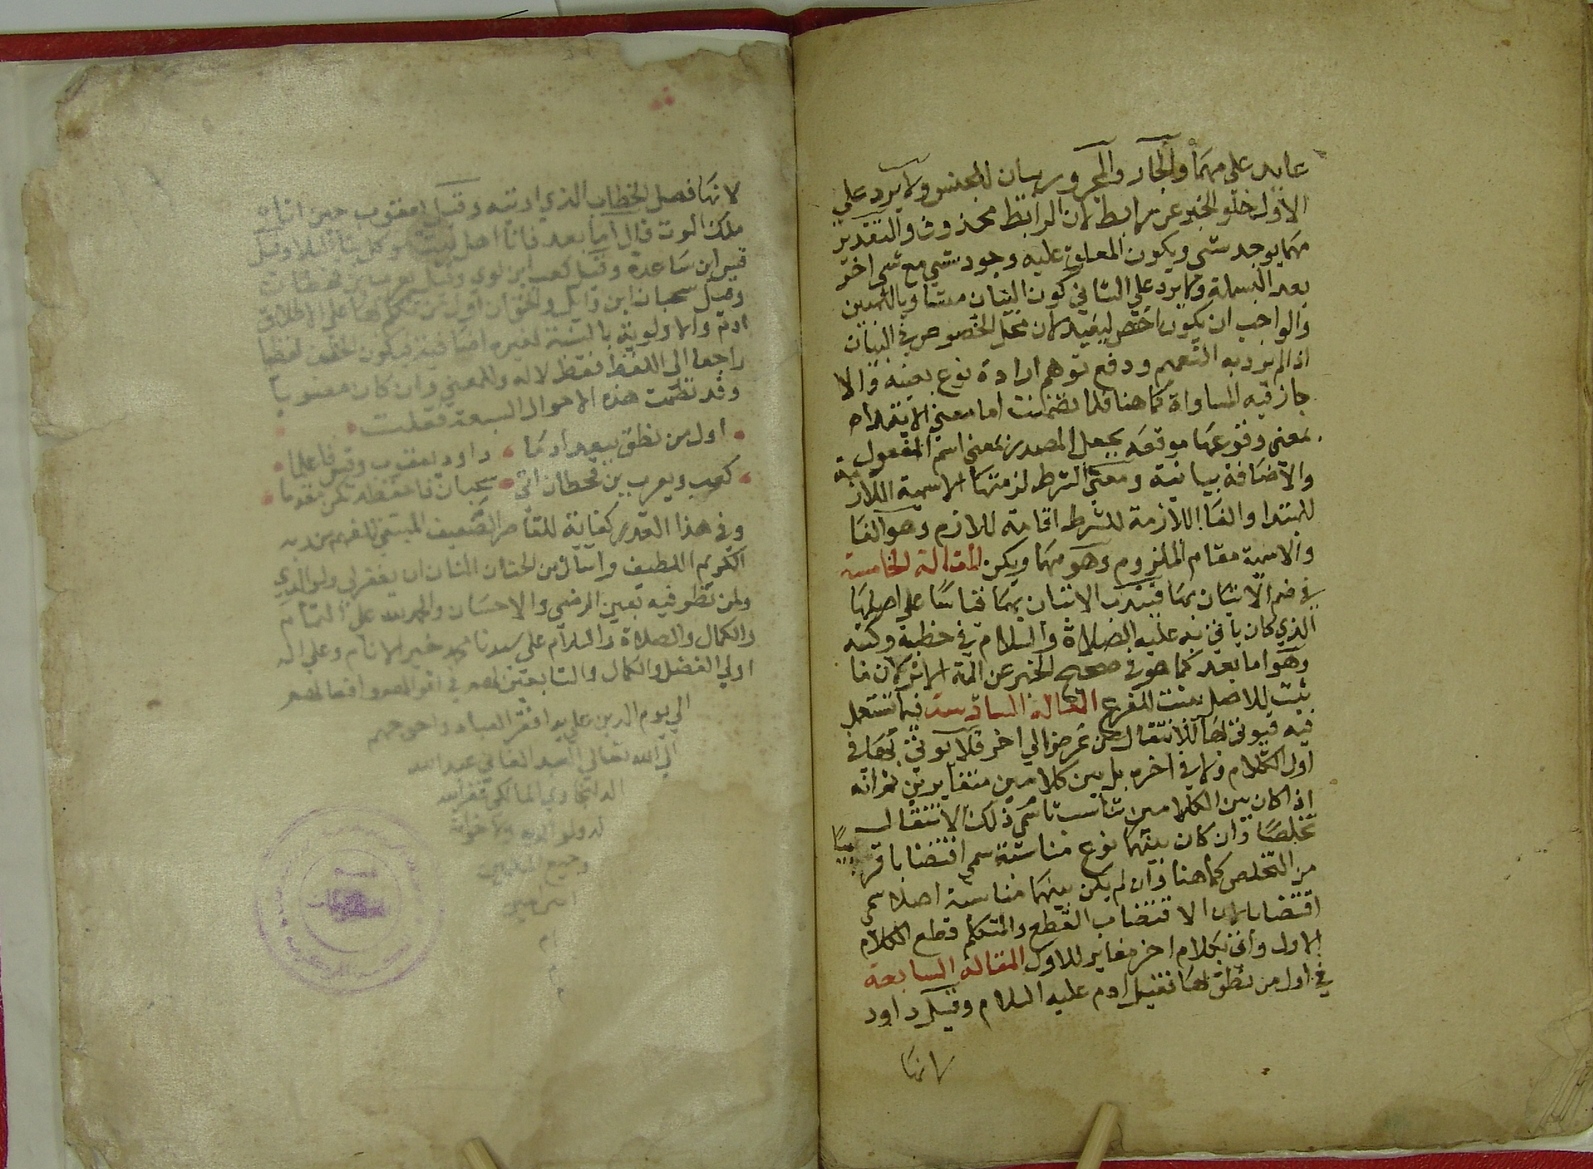 عايد على مهما والجار والمجرور بيان للجنس ولا يرد على
الاول خلو الخبر عن رابط لان الرابط محذوف والتقدير
مهما يوجد شي ويكون المعلق عليه وجود شي مع شي اخر
بعد البسملة ولا يرد على الثاني كون البيان مساويا للمبين
والواجب ان يكون اخص ليفيد لان محل الخصوص في البيان
اذا لم يرد به التعميم ودفع توهم ارادة نوع بعينه والا
جاز فيه المساواة كما هنا فلما تضمنت اما معنى الابتداء
بمعنى وقوعها موقعه بجعل المصدر بمعنى اسم المفعول
والاضافة بيانية ومعنى الشرط لزمتها الاسمية اللازمة
للمبتدا والفا اللازمة للشرط اقامة للازم وهو الفا
والاسمية مقام الملزوم وهو مهما ويكن المقالة الخامسة
في حكم الاتيان بها فيندب الاتيان بها قياسا على اصلها
الذي كان ياتي به عليه الصلاة والسلام في خطبه وكتبه
وهو اما بعد كما هو في صحيح الخبر عن الاثر لان ما
ثبت للاصل يثبت للفرع المقالة السادسة فيما تستعمل
فيه فيوتى بها للانتقال من غرض الي اخر فلا يوتى بها في
اول الكلام ولا في اخره بل بين كلامين متغايرين ثم انه
اذا كان بين الكلامين تناسب تام سمي ذلك الانتقال
تخلصا وان كان بينهما نوع مناسبة سمي اقتضابا قريبا
من التخلص كما هنا وان لم يكن بينهما مناسبة اصلا سمي
اقتضابا لان الاقتضاب القطع والمتكلم قطع الكلام
الاول واتى بكلام اخر مغاير للاول المقالة السابعة
في اول من نطق بها فقيل ادم عليه السلام وقيل داود
لانها
لانها فصل الخطاب الذي اوتيه وقيل يعقوب حين اتاه
ملك الموت قال اما بعد فانا اهل بيت موكل بنا البلا وقيل
قس ابن ساعدة وقيل كعب ابن لوي وقيل يعرب بن قحطان
وقيل سحبان ابن وايل والحق ان اول من تكلم بها على الاطلاق
ادم والاولوية بالنسبة لغيره اضافية فيكون الخلف لفظيا
راجعا الى اللفظ فقط لا له وللمعنى وان كان معنويا
وقد نظمت هذه الاحوال السبعة فقلت
اول من نطق ببعد ادما داود يعقوب وقس فاعلما
كعب ويعرب بن قحطان اتي سحبان فاحفظه تكن مقدما
وفي هذا القدر كفاية للقاصر الضعيف المبتغي للفهم من ربه
الكريم اللطيف واسال من الحنان المنان ان يغفر لي ولوالدي
ولمن نظر فيه بعين الرضي والاحسان والحمد لله على التمام
والكمال والصلاة والسلام على سيدنا محمد خير الانام وعلى اله
اولي الفضل والكمال والتابعين لهم في اقوالهم وافعالهم
الي يوم الدين على يد افقر العباد واحوجهم
الي الله تعالى العبد الفاني عبد الله
المالكي غفر الله
له ولوالديه ولاخوانه
وجميع المسلمين
امين